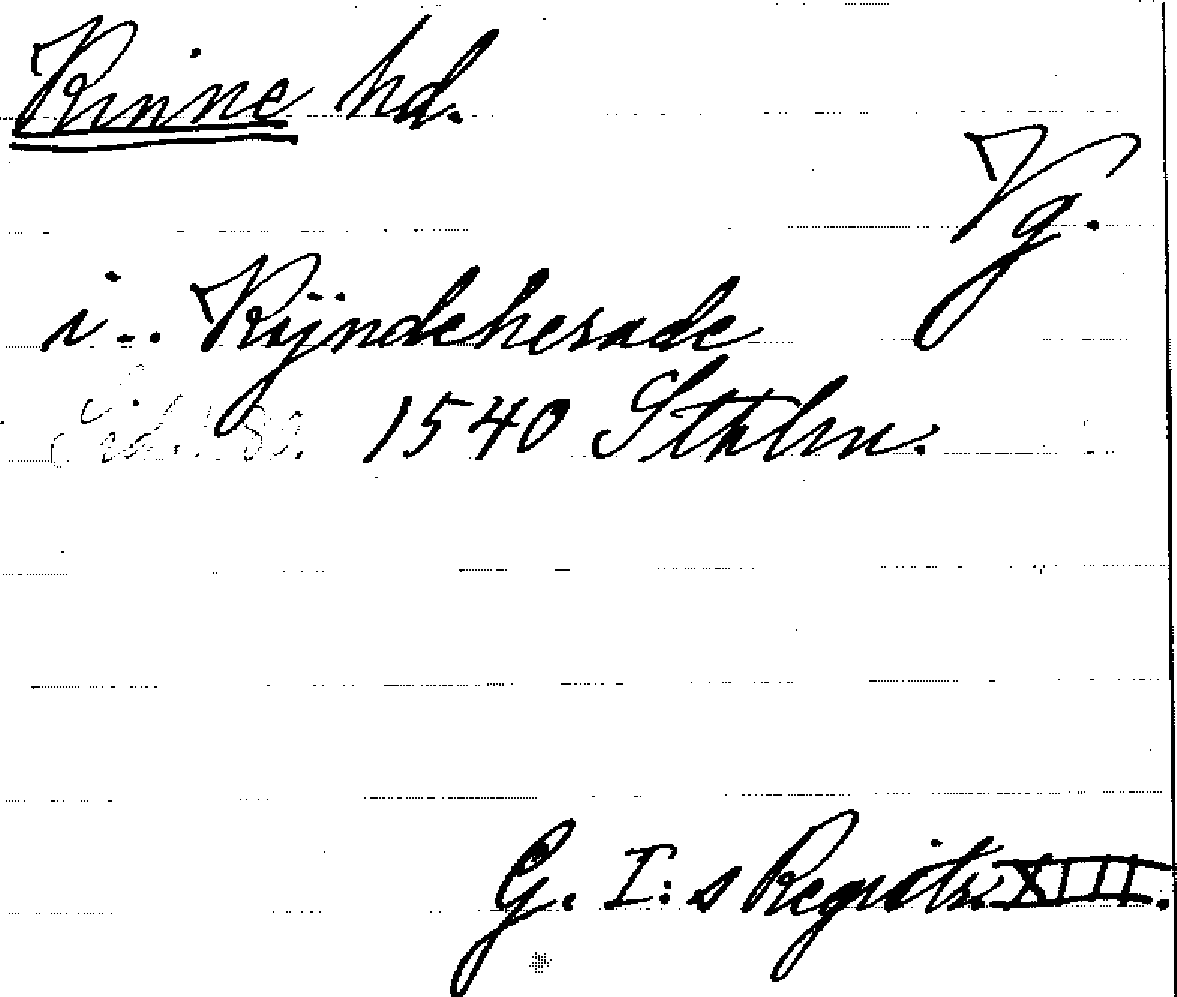 Kinne hd.
Vg.
i .. Kijndeherade
1540 Sthlm.
G. I:s Registr. XIII.